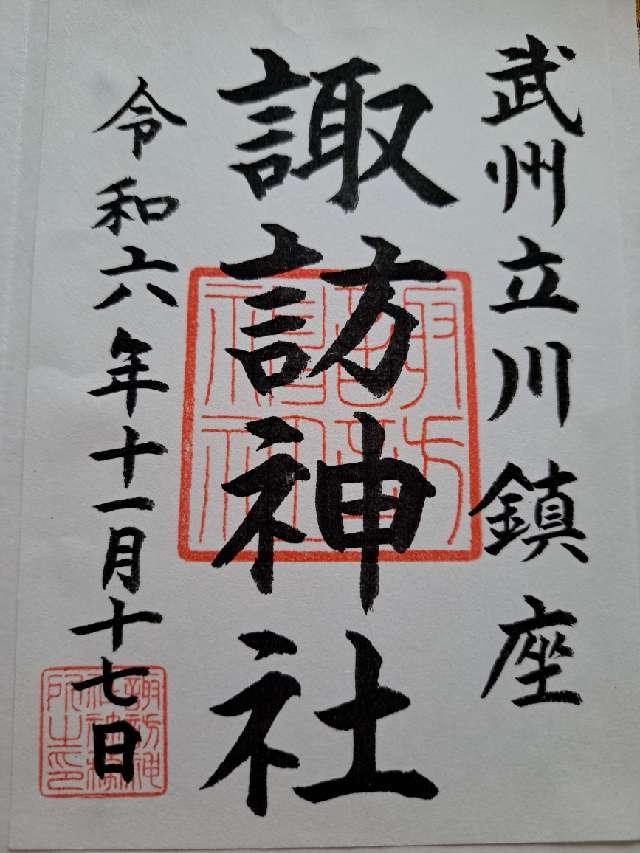 武州立川鎮座
諏訪神社
令和六年十一月十七日